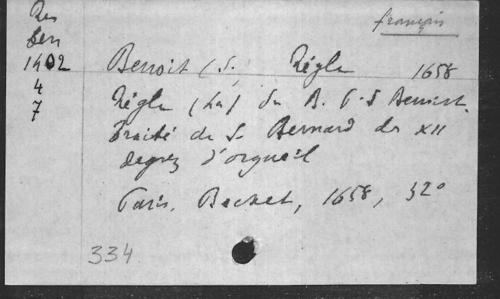 français
Res
Ben
1402
4
7
Benoit (S. Règle 1658
Règle (La) du B. P. S Benoist.
Traité de S. Bernard des XII
degrez d'orgueil
Paris. Bechet, 1658, 32°
334